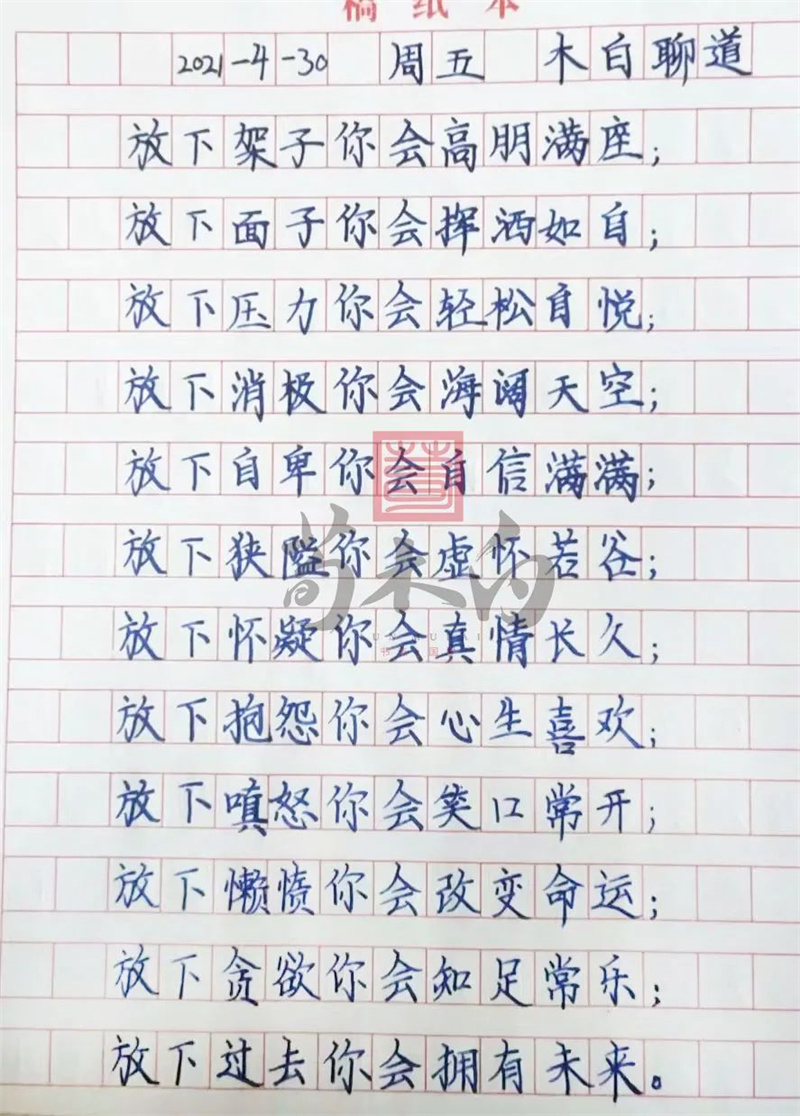 稿纸本
2021-4-30 周五 木白聊道
放下架子你会高朋满座；
放下面子你会挥洒如自；
放下压力你会轻松自悦；
放下消极你会海阔天空；
放下自卑你会自信满满；
放下狭隘你会虚怀若谷；
放下怀疑你会真情长久；
放下抱怨你会心生喜欢；
放下嗔怒你会笑口常开；
放下懒愤你会改变命运；
放下贪欲你会知足常乐；
放下过去你会拥有未来。